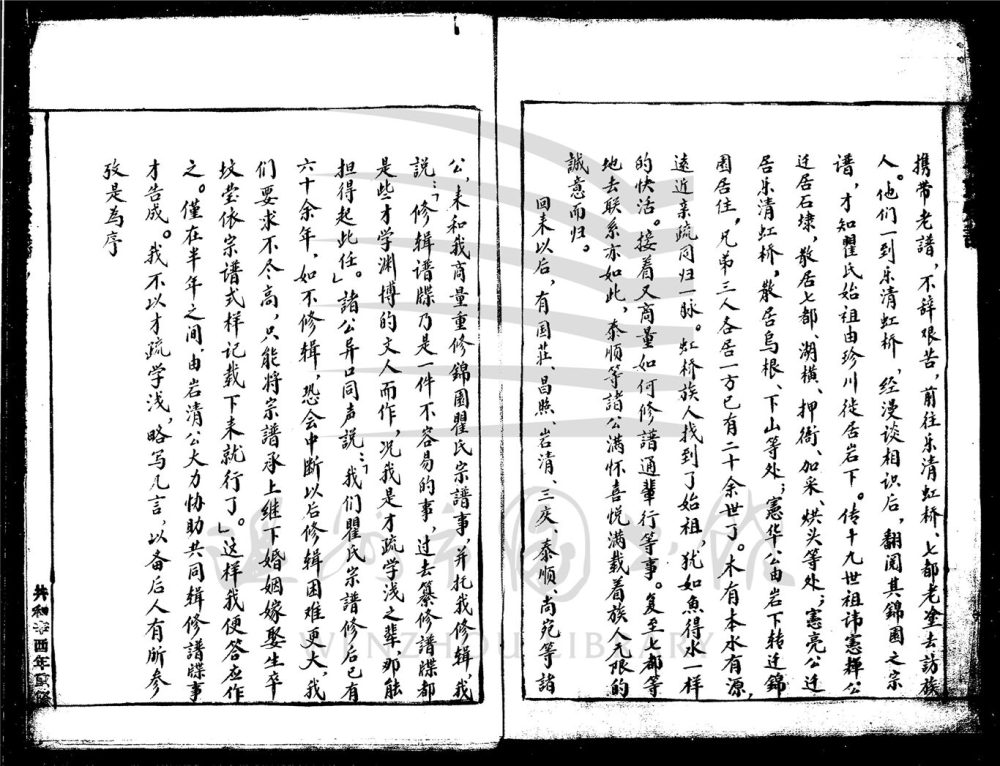 携带老譜，不辞艰苦，前往乐清虹桥、七都老塗去訪族
人。他们一到乐清虹桥，经漫谈相识后，翻阅其錦園之宗
谱，才知瞿氏始祖由珍川徙居岩下。传十九世祖讳憲揮公
迁居石埭，散居七都、湖横、押衙、加采、烘头等处；憲亮公迁
居乐清虹桥，散居烏根、下山等处；憲华公由岩下转迁錦
園居住，兄弟三人各居一方已有二十余世了。木有本水有源，
遠近亲疏同归一脉。虹桥族人找到了始祖，犹如魚得水一样
的快活。接着又商量如何修譜通輩行等事。复至七都等
地去联系亦如此，泰顺等諸公满怀喜悦满载着族人无限的
誠意而归。
回来以后，有国莊、昌熙、岩清、三庆、泰顺、尚宛等諸
公，来和我商量重修錦園瞿氏宗譜事，并托我修辑，我
说：“修辑谱牒乃是一件不容易的事，过去纂修谱牒都
是些才学渊博的文人而作，况我是才疏学浅之辈，那能
担得起此任。”諸公异口同声说：“我们瞿氏宗譜修后已有
六十余年，如不修辑，恐会中断以后修辑困难更大，我
们要求不尽高，只能将宗譜承上维下婚姻嫁娶生卒
坟茔依宗谱式样记载下来就行了。”这样我便答应作
之。僅在半年之间由岩清公大力协助共同辑修譜牒事
才告成。我不以才疏学浅，略写几言，以备后人有所参
攷是為序
共和辛酉年重修
WENZHOU LIBRARY